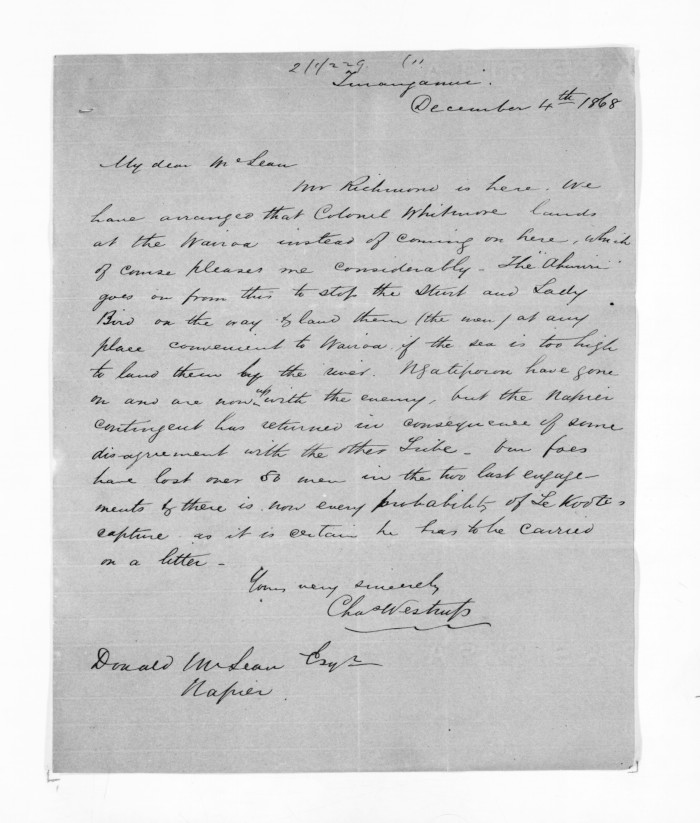 2/1/229 (11
Turanganui.
December 4th 1868
My dear McLean
Mr Richmond is here. We
have arranged that Colonel Whitmore lands
at the Wairoa instead of coming on here, which
of course pleases me considerably - The "Ahuriri"
goes on from this to stop the Sturt and Lady
Bird on the way & land them (the men) at any
place convenient to Wairoa if the sea is too high
to land them by the river. Ngatiporou have gone
on and are now up with the enemy, but the Napier
contingent has returned in consequence of some
disagreement with the other Tribe - Our foes
have lost over 50 men in the two last engage-
ments & there is now every probability of Te Kootes
capture as it is certain he has to be carried
on a litter -
Yours very sincerely
Chas Westrup
Donald McLean Esqr
Napier.